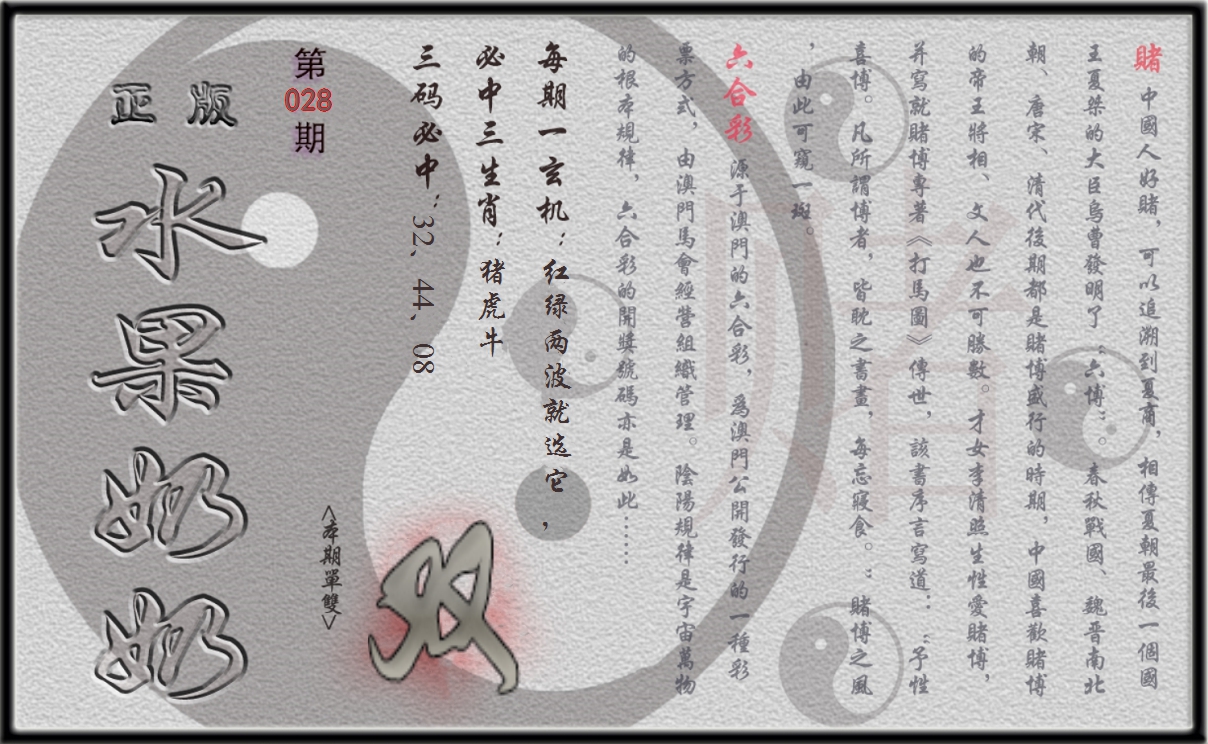 賭 中國人好賭，可以追溯到夏商，相傳夏朝最後一個國
王夏桀的大臣烏曹發明了“六博”。春秋戰國、魏晋南北
朝、唐宋、清代後期都是賭博盛行的時期，中國喜歡賭博
的帝王將相、文人也不可勝數。才女李清照生性愛賭博，
并寫就賭博專著《打馬圖》傳世，該書序言寫道：“予性
喜博。凡所謂博者，皆耽之書畫，每忘寢食。：賭博之風
，由此可窺一斑。
六合彩 源于澳門的六合彩，爲澳門公開發行的一種彩
票方式，由澳門馬會經營組織管理。陰陽規律是宇宙萬物
的根本規律，六合彩的開獎號碼亦是如此……
每期一玄机：红绿两波就选它，
必中三生肖：猪虎牛
三码必中：32，44，08
第
028
期
<本期單雙>
双
正版
水果奶奶
赌